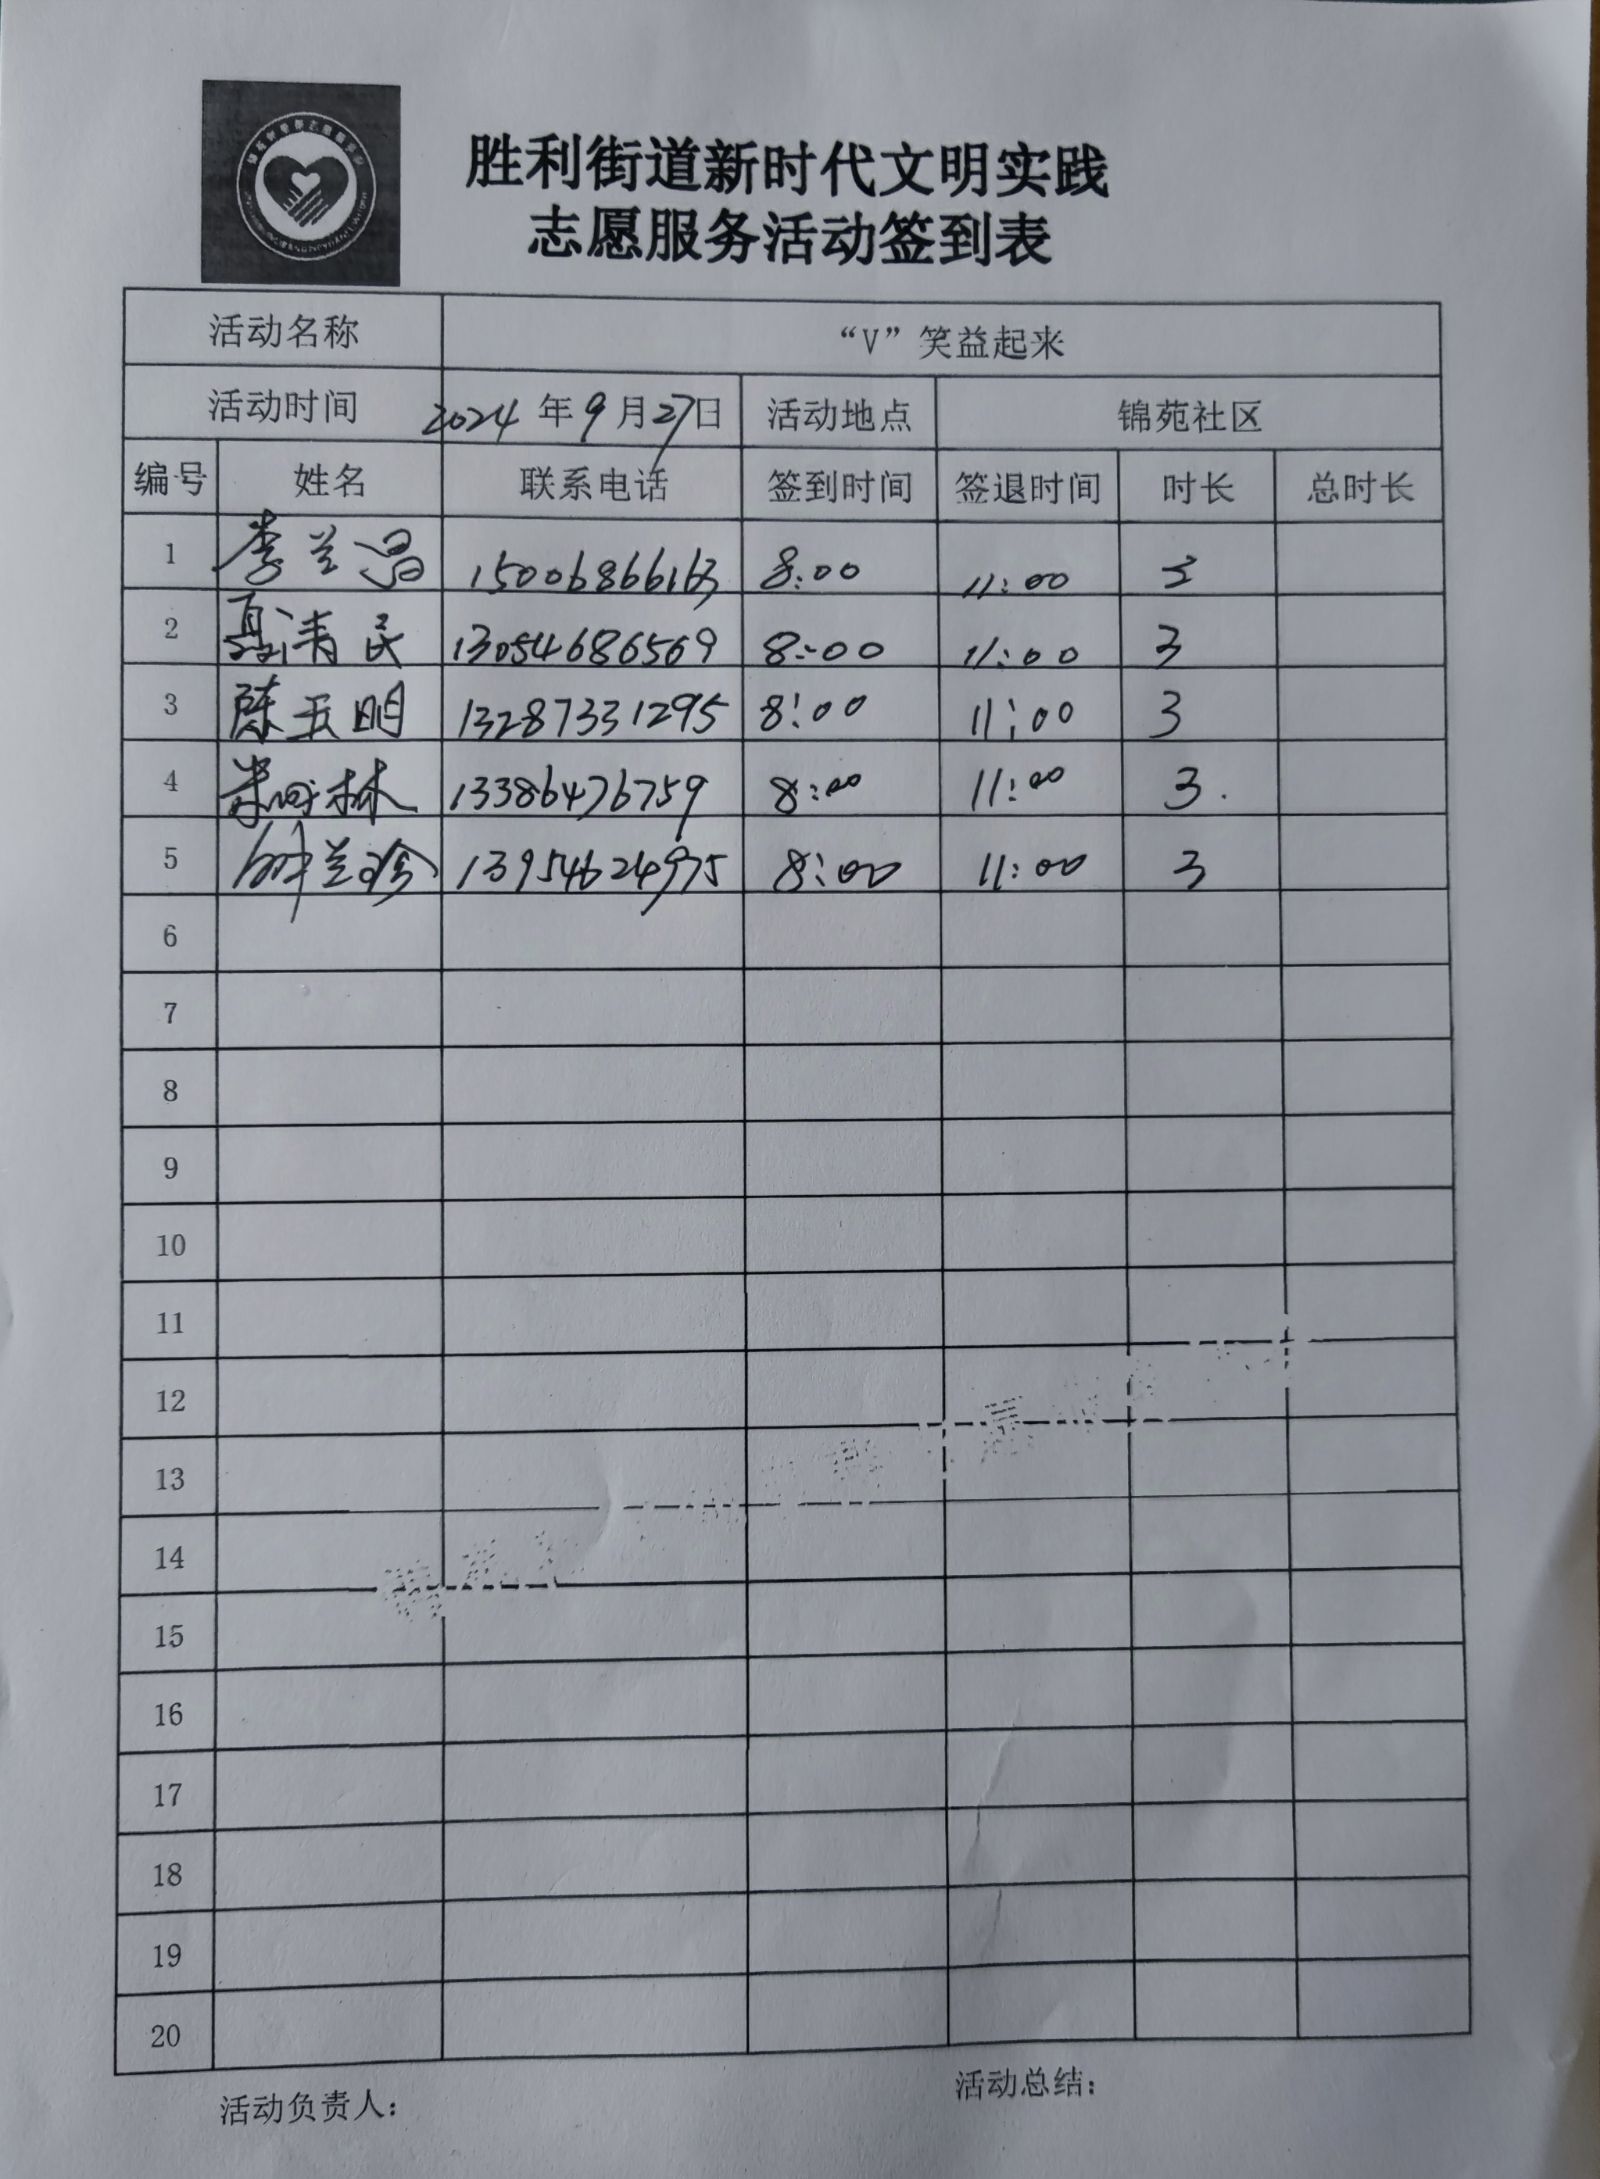 胜利街道新时代文明实践
志愿服务活动签到表
活动名称 “V”笑益起来
活动时间 2024年9月27日 活动地点 锦苑社区
编号 姓名 联系电话 签到时间 签退时间 时长 总时长
1 李兰昌 15006866163 8:00 11:00 3
2 聂清民 13054686569 8:00 11:00 3
3 陈玉明 13287331295 8:00 11:00 3
4 林 13386476759 8:00 11:00 3
5 兰珍 13954624975 8:00 11:00 3
6
7
8
9
10
11
12
13
14
15
16
17
18
19
20
活动负责人： 活动总结：